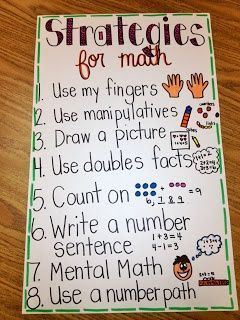 Strategies
for math
1. Use my fingers
2. Use manipulatives
3. Draw a picture
4. Use doubles facts
5. Count on
= 9
6, 7 8 9
6. Write a number
sentence
1+3=4
4-1=3
7. Mental Math
8. Use a number path